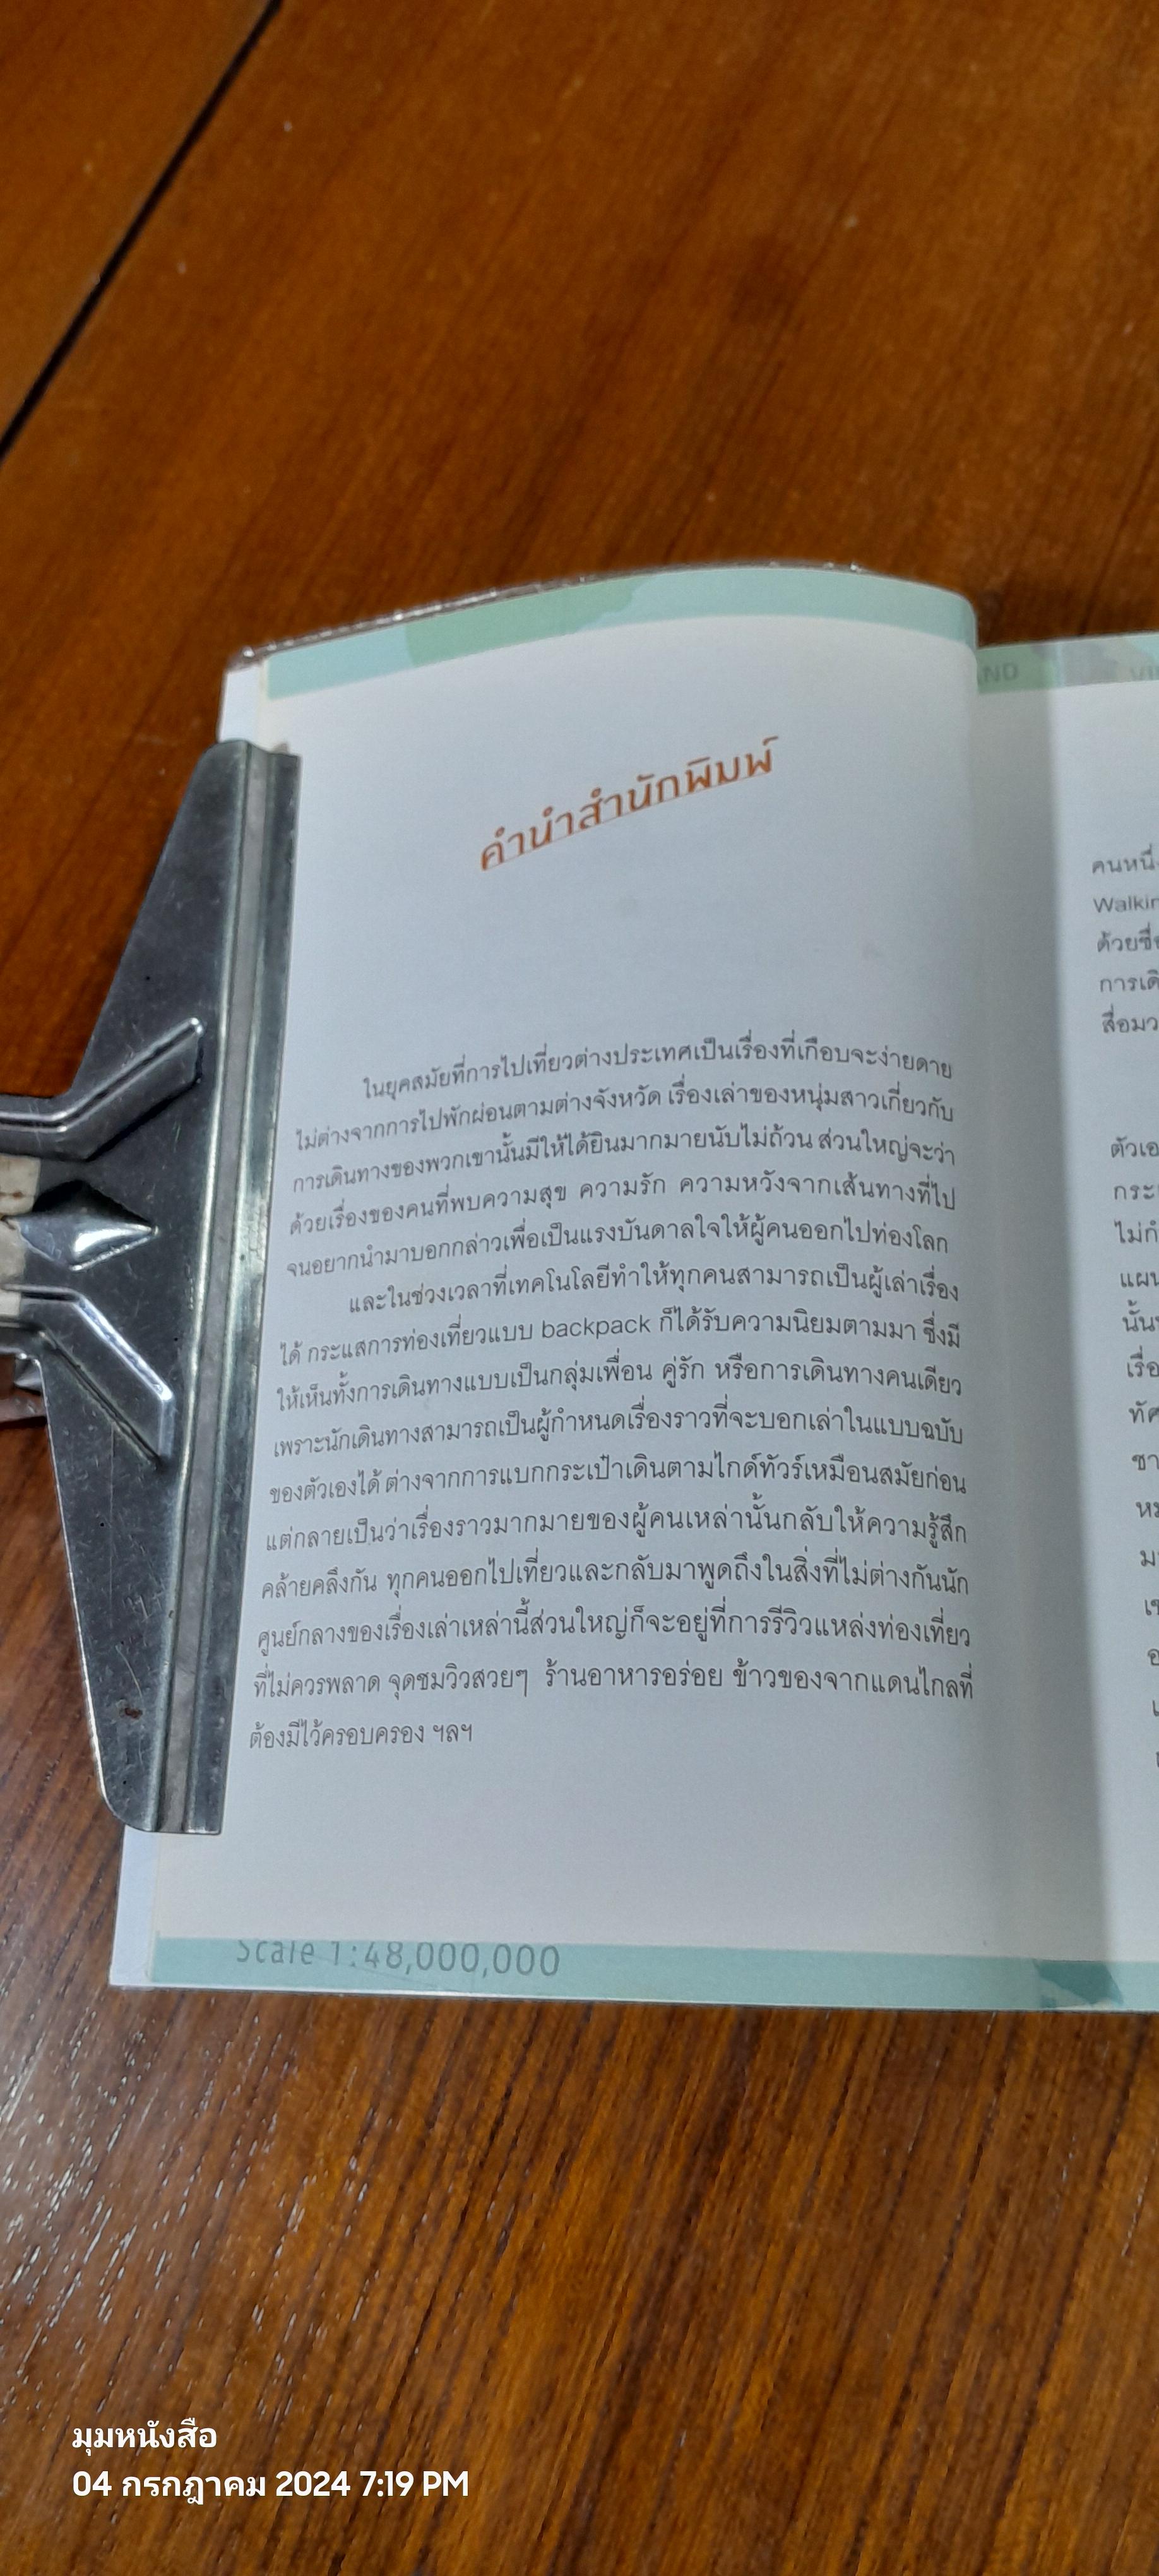 คำนำสำนักพิมพ์
ในยุคสมัยที่การไปเที่ยวต่างประเทศเป็นเรื่องที่เกือบจะง่ายดาย
ไม่ต่างจากการไปพักผ่อนตามต่างจังหวัด เรื่องเล่าของหนุ่มสาวเกี่ยวกับ
การเดินทางของพวกเขานั้นมีให้ได้ยินมากมายนับไม่ถ้วน ส่วนใหญ่จะว่า
ด้วยเรื่องของคนที่พบความสุข ความรัก ความหวังจากเส้นทางที่ไป
จนอยากนำมาบอกกล่าวเพื่อเป็นแรงบันดาลใจให้ผู้คนออกไปท่องโลก
และในช่วงเวลาที่เทคโนโลยีทำให้ทุกคนสามารถเป็นผู้เล่าเรื่อง
ได้ กระแสการท่องเที่ยวแบบ backpack ก็ได้รับความนิยมตามมา ซึ่งมี
ให้เห็นทั้งการเดินทางแบบเป็นกลุ่มเพื่อน คู่รัก หรือการเดินทางคนเดียว
เพราะนักเดินทางสามารถเป็นผู้กำหนดเรื่องราวที่จะบอกเล่าในแบบฉบับ
ของตัวเองได้ ต่างจากการแบกกระเป๋าเดินตามไกด์ทัวร์เหมือนสมัยก่อน
แต่กลายเป็นว่าเรื่องราวมากมายของผู้คนเหล่านั้นกลับให้ความรู้สึก
คล้ายคลึงกัน ทุกคนออกไปเที่ยวและกลับมาพูดถึงในสิ่งที่ไม่ต่างกันนัก
ศูนย์กลางของเรื่องเล่าเหล่านี้ส่วนใหญ่ก็จะอยู่ที่การรีวิวแหล่งท่องเที่ยว
ที่ไม่ควรพลาด จุดชมวิวสวยๆ ร้านอาหารอร่อย ข้าวของจากแดนไกลที่
ต้องมีไว้ครอบครอง ฯลฯ
Scale 1:48,000,000
คนหนึ่ง
ด้วยชื่อ
การเดิ
สื่อมว
ตัวเอ
กระ
ไม่ก่
แผน
นั้น
เรื่อ
ทัศ
ชา
มุมหนังสือ
04 กรกฎาคม 2024 7:19 PM